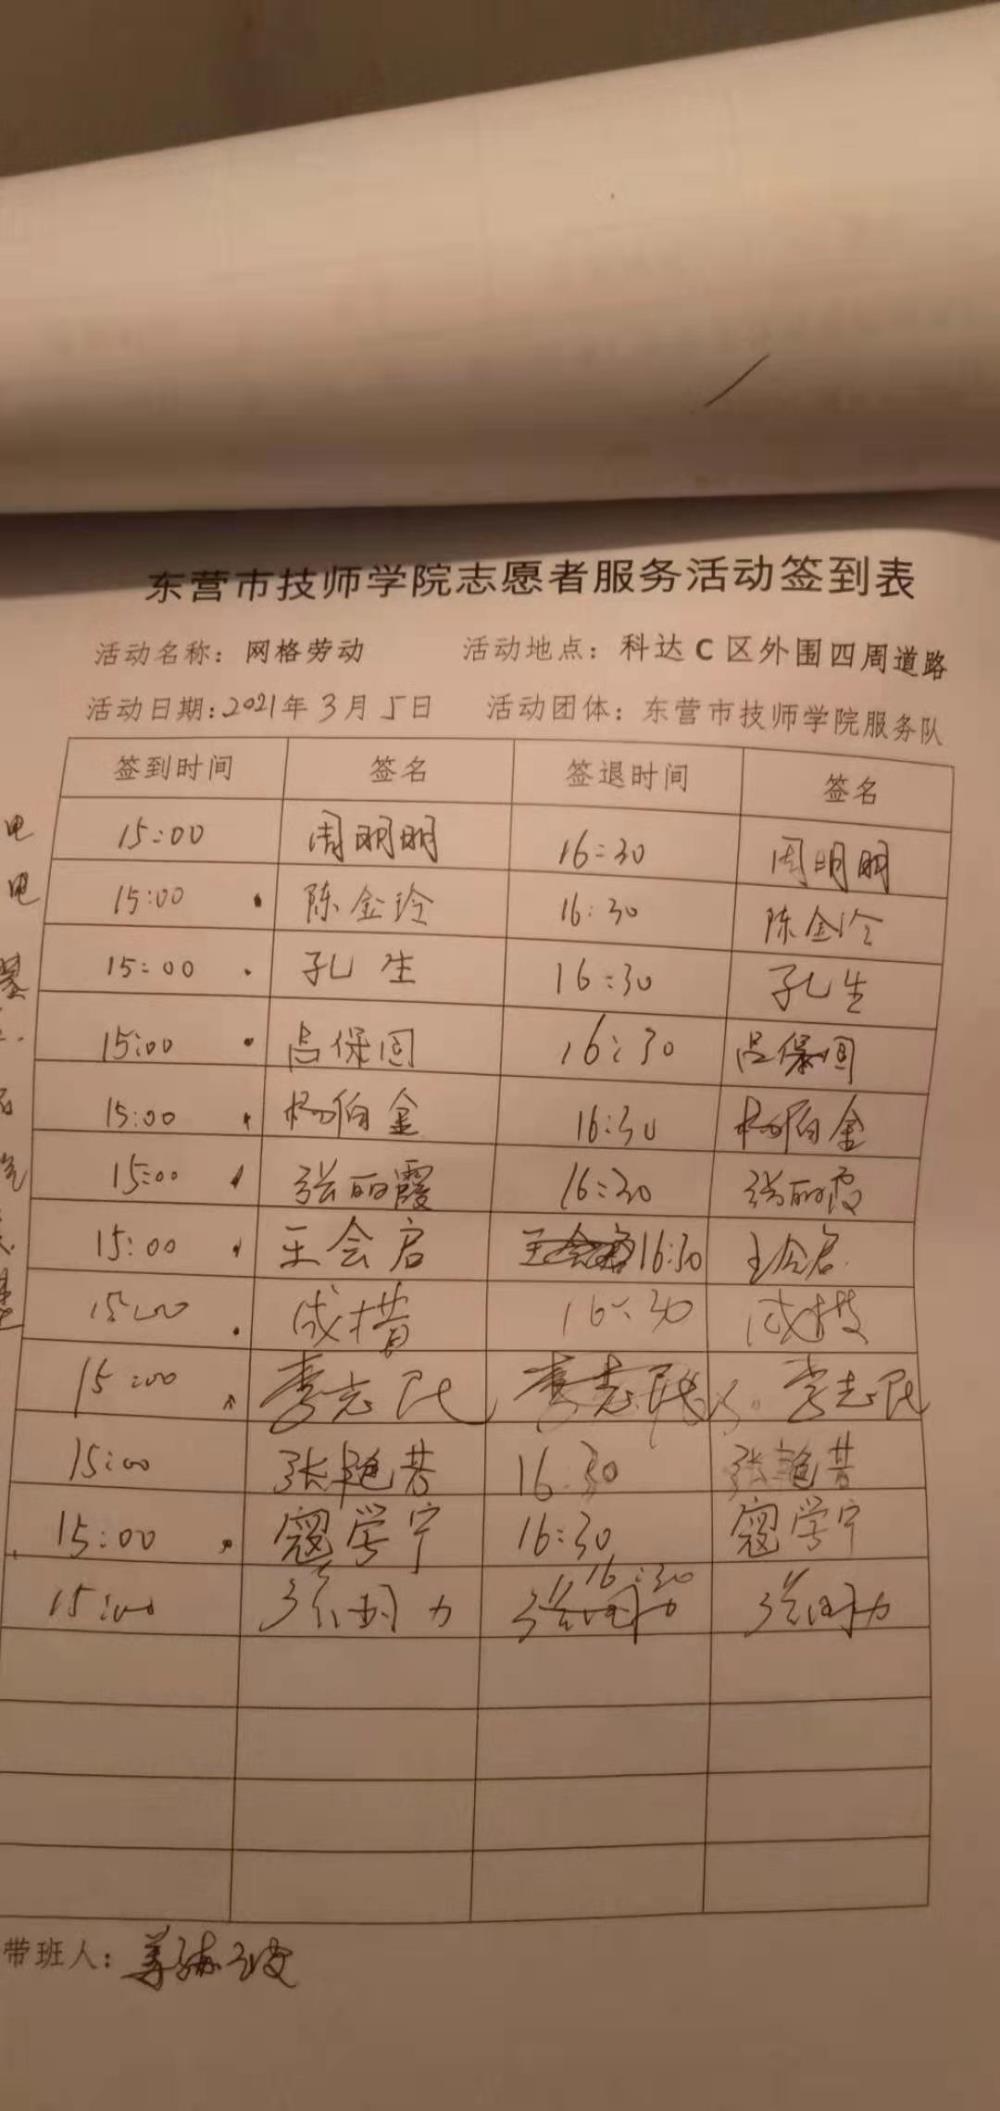 东营市技师学院志愿者服务活动签到表
活动名称：网格劳动 活动地点：科达C区外围四周道路
活动日期：2021年3月5日 活动团体：东营市技师学院服务队
签到时间 签名 签退时间 签名
电 15:00 周明明 16:30 周明明
电 15:00 陈金玲 16:30 陈金玲
15:00 孔生 16:30 孔生
15:00 吕保国 16:30 吕保国
15:00 杨伯金 16:30 杨伯金
15:00 张丽霞 16:30 张丽霞
15:00 王会启 16:30 王会启
15:00 成 16:30 成
15:00 李志民 李志民 李志民
15:00 张艳芳 16:30 张艳芳
15:00 寇学宁 16:30 寇学宁
15:00 16:30
带班人：